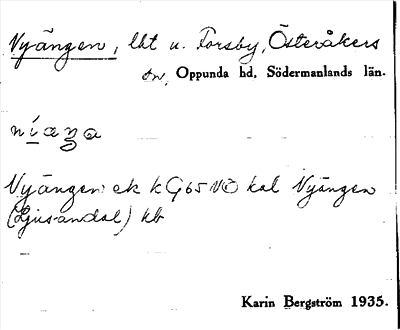 Vyängen, lht u. Forsby, Österåkers
sn, Oppunda hd, Södermanlands län.
Vyängen ek kG65NÖ kal Vyängen
(Ljusandal) kb
Karin Bergström 1935.